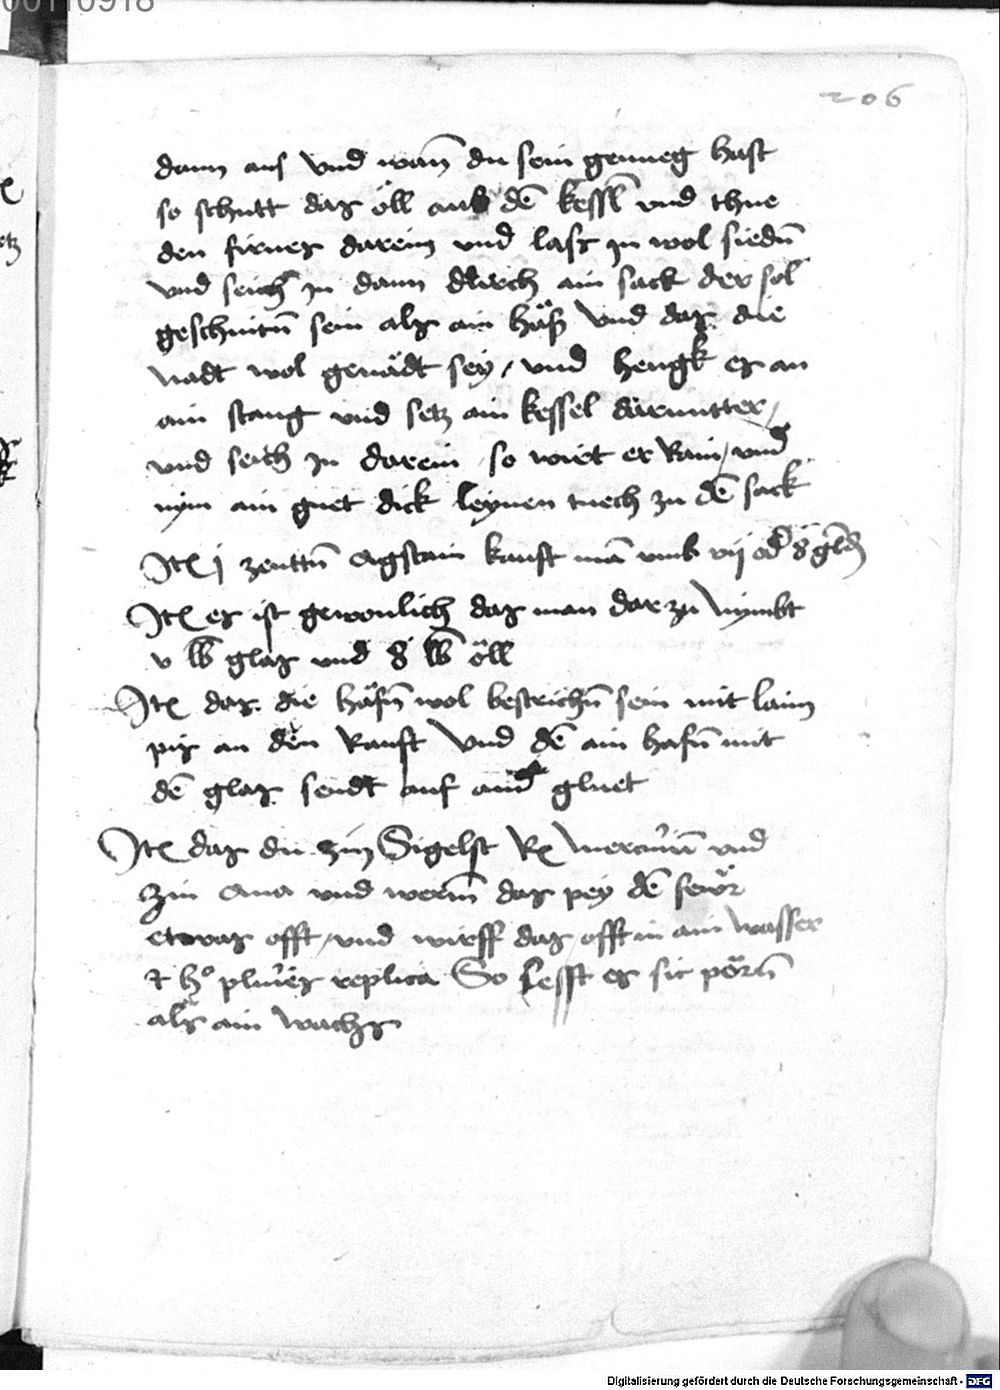 00110918
206
dann aus vnd wan̄ du sein genueg hast
so schutt daz öll aus dē kessl̄ vnd thue
den firnes darein vnd lass in wol siedn̄
vnd seich in dann durch ain sack der sol
geschnitn̄ sein als ain häs vnd daz die
nadt wol genädt sey / vnd hengk es an
ain stang vnd setz ain kessel daruntter /
vnd seich in darein so wirt er Rain / vnd
nym ain guet dick leynen tuech zu dē sack
Itē j zenttn̄ Agstain kauft mā vmb vij od̄ 8 gld̄
Itē es ist gewonlich daz man dar zu nymbt
v lb glas vnd 8 lb öll
Itē daz die häfn̄ wol bestrichn̄ sein mit laim
piz an den Ranft vnd dē ain hafn̄ mit
dē glas sendt auf and̄ gluet
Itē daz du zin Sigelst Rx mercurū vnd
zin Ana vnd werm̄ daz pey dē fewr
etwas offt / vnd wirff daz offt in ain wasser
et h° plures replica So lesst es sic pörn̄
als ain wachs
Digitalisierung gefördert durch die Deutsche Forschungsgemeinschaft - DFG